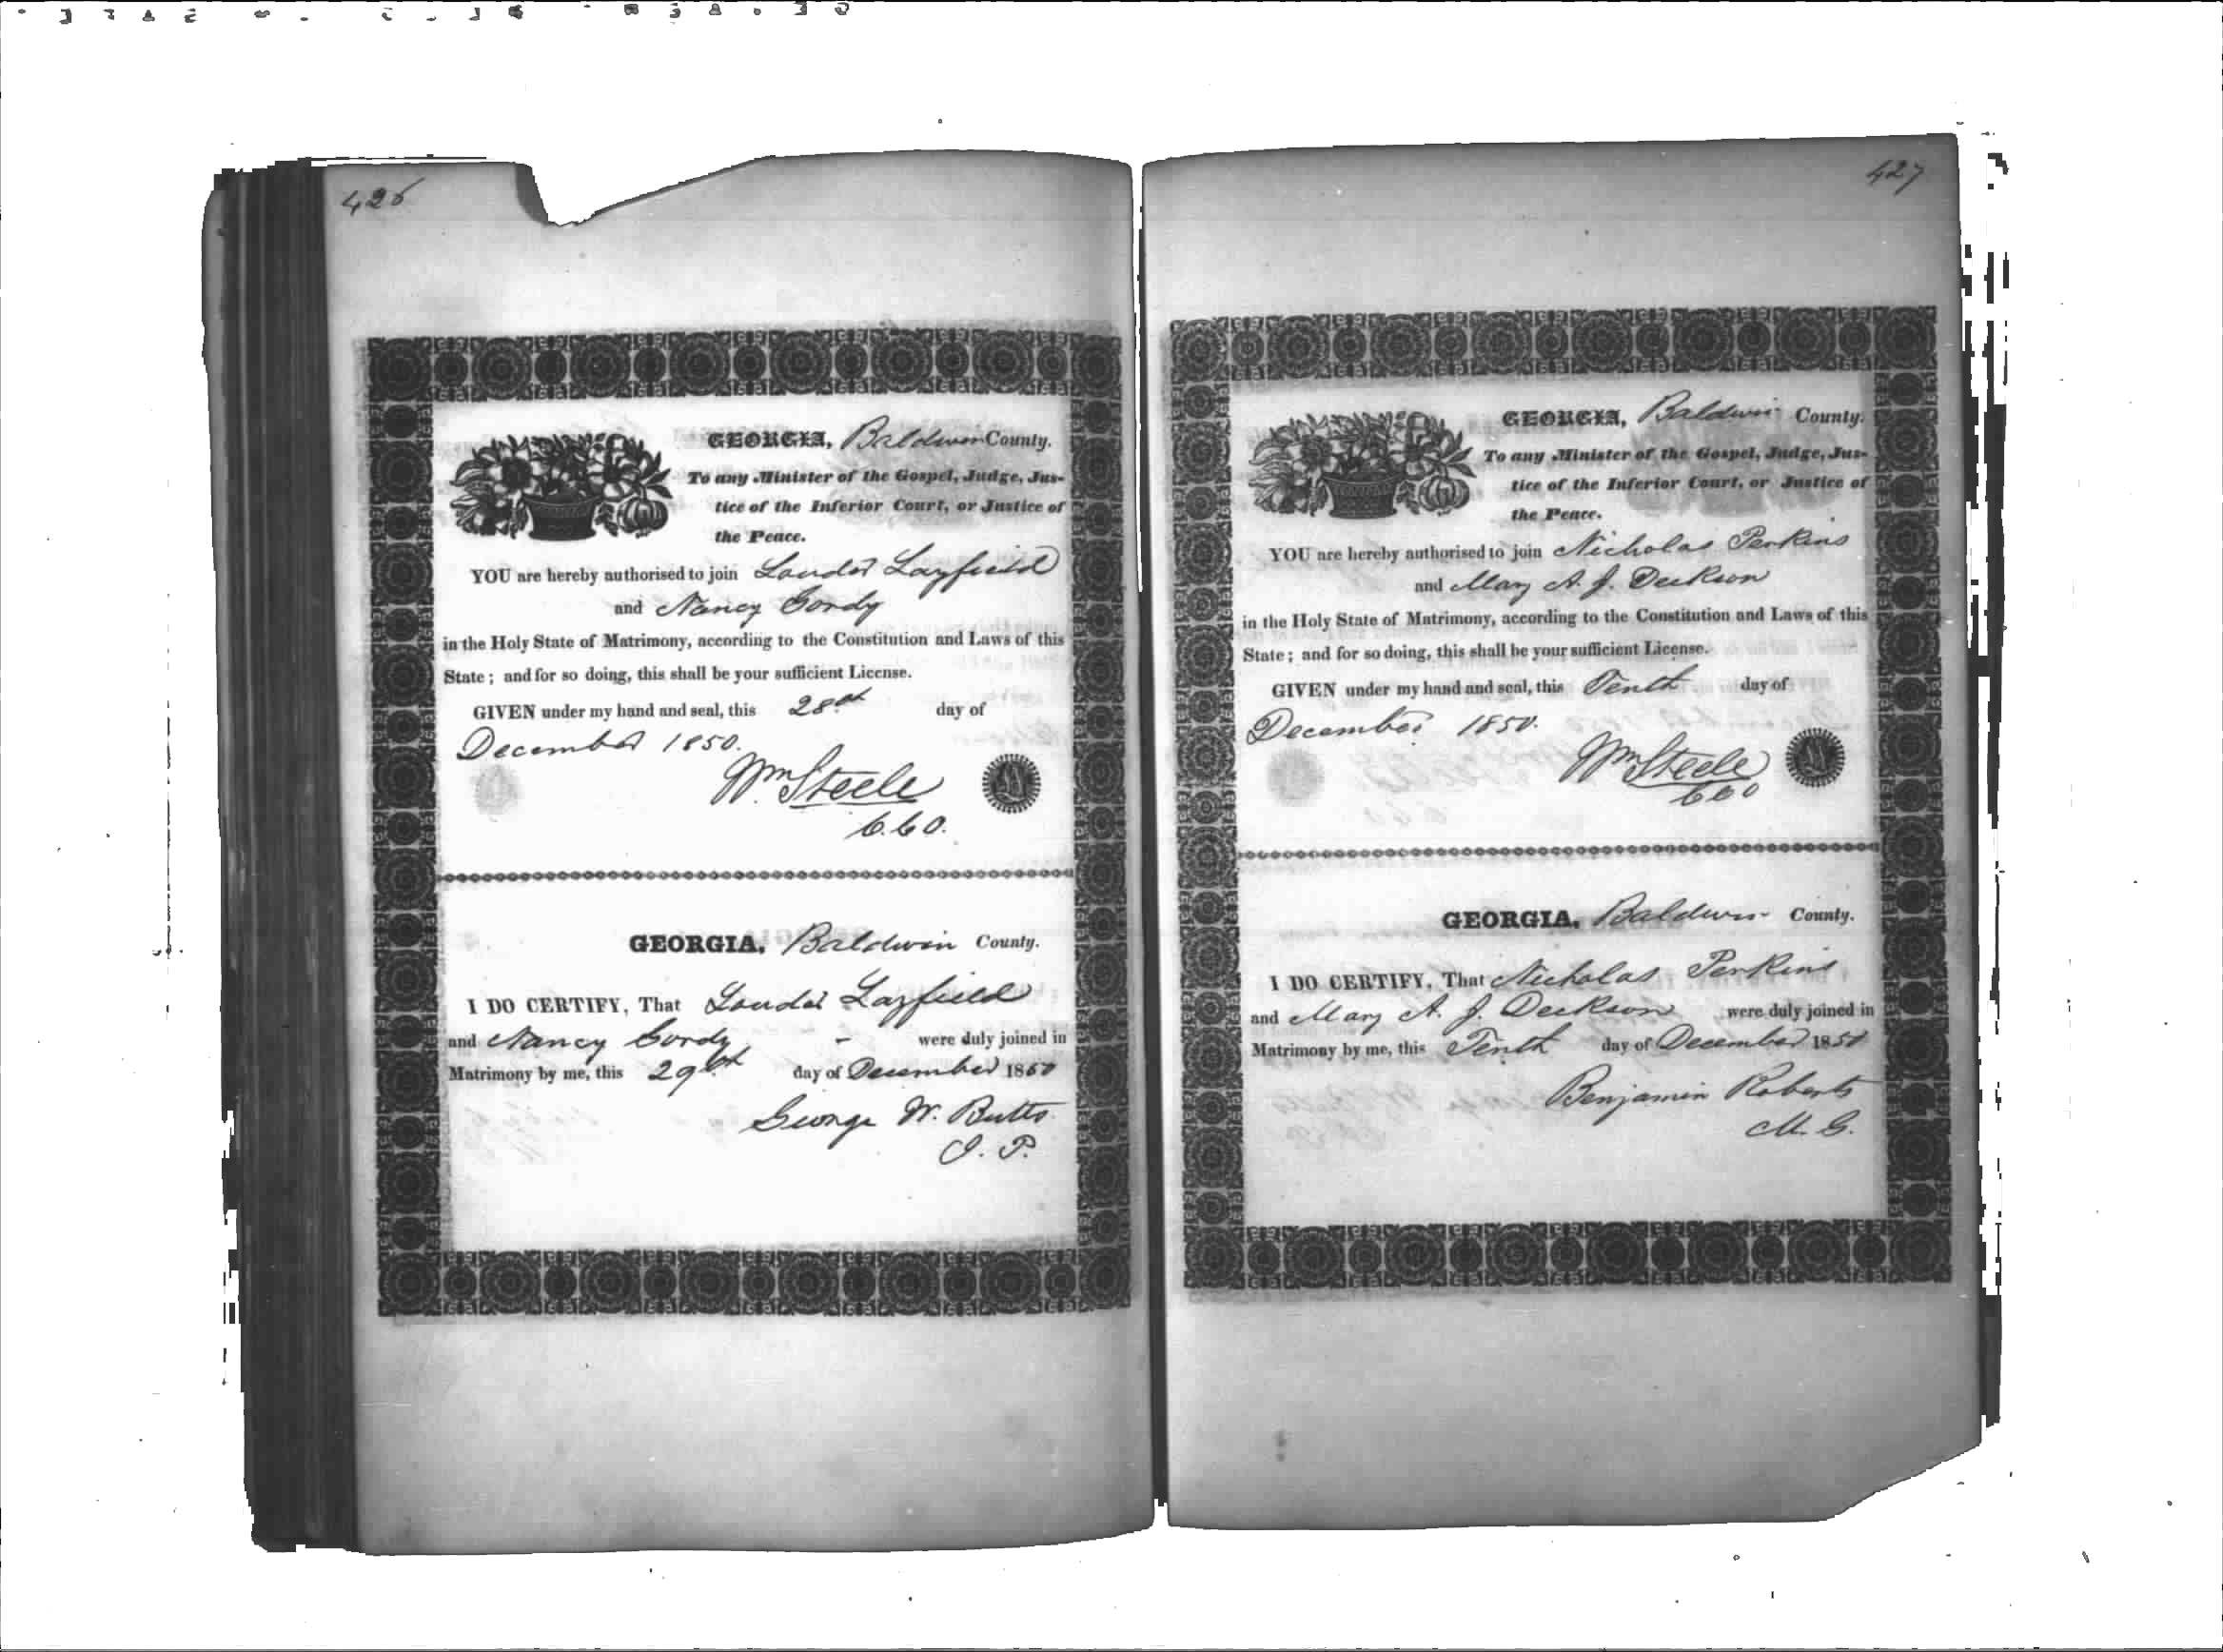 426
GEORGIA, Baldwin County.
To any Minister of the Gospel, Judge, Jus-
tice of the Inferior Court, or Justice of
the Peace.
YOU are hereby authorised to join Layfield
and Nancy Gordy
in the Holy State of Matrimony, according to the Constitution and Laws of this
State; and for so doing, this shall be your sufficient License.
GIVEN under my hand and seal, this 28th day of
December 1850.
Wm Steele
C.C.O.
GEORGIA, Baldwin County.
I DO CERTIFY, That Layfield
and Nancy Gordy - were duly joined in
Matrimony by me, this 29th day of December 1850
George W. Butts
J. P.
427
GEORGIA, Baldwin County.
To any Minister of the Gospel, Judge, Jus-
tice of the Inferior Court, or Justice of
the Peace.
YOU are hereby authorised to join Nicholas Perkins
and Mary A. J. Deckson
in the Holy State of Matrimony, according to the Constitution and Laws of this
State; and for so doing, this shall be your sufficient License.
GIVEN under my hand and seal, this Tenth day of
December 1850.
Wm Steele
CCO
GEORGIA, Baldwin County.
I DO CERTIFY, That Nicholas Perkins
and Mary A. J. Deckson were duly joined in
Matrimony by me, this Tenth day of December 1850
Benjamin Roberts
M. G.